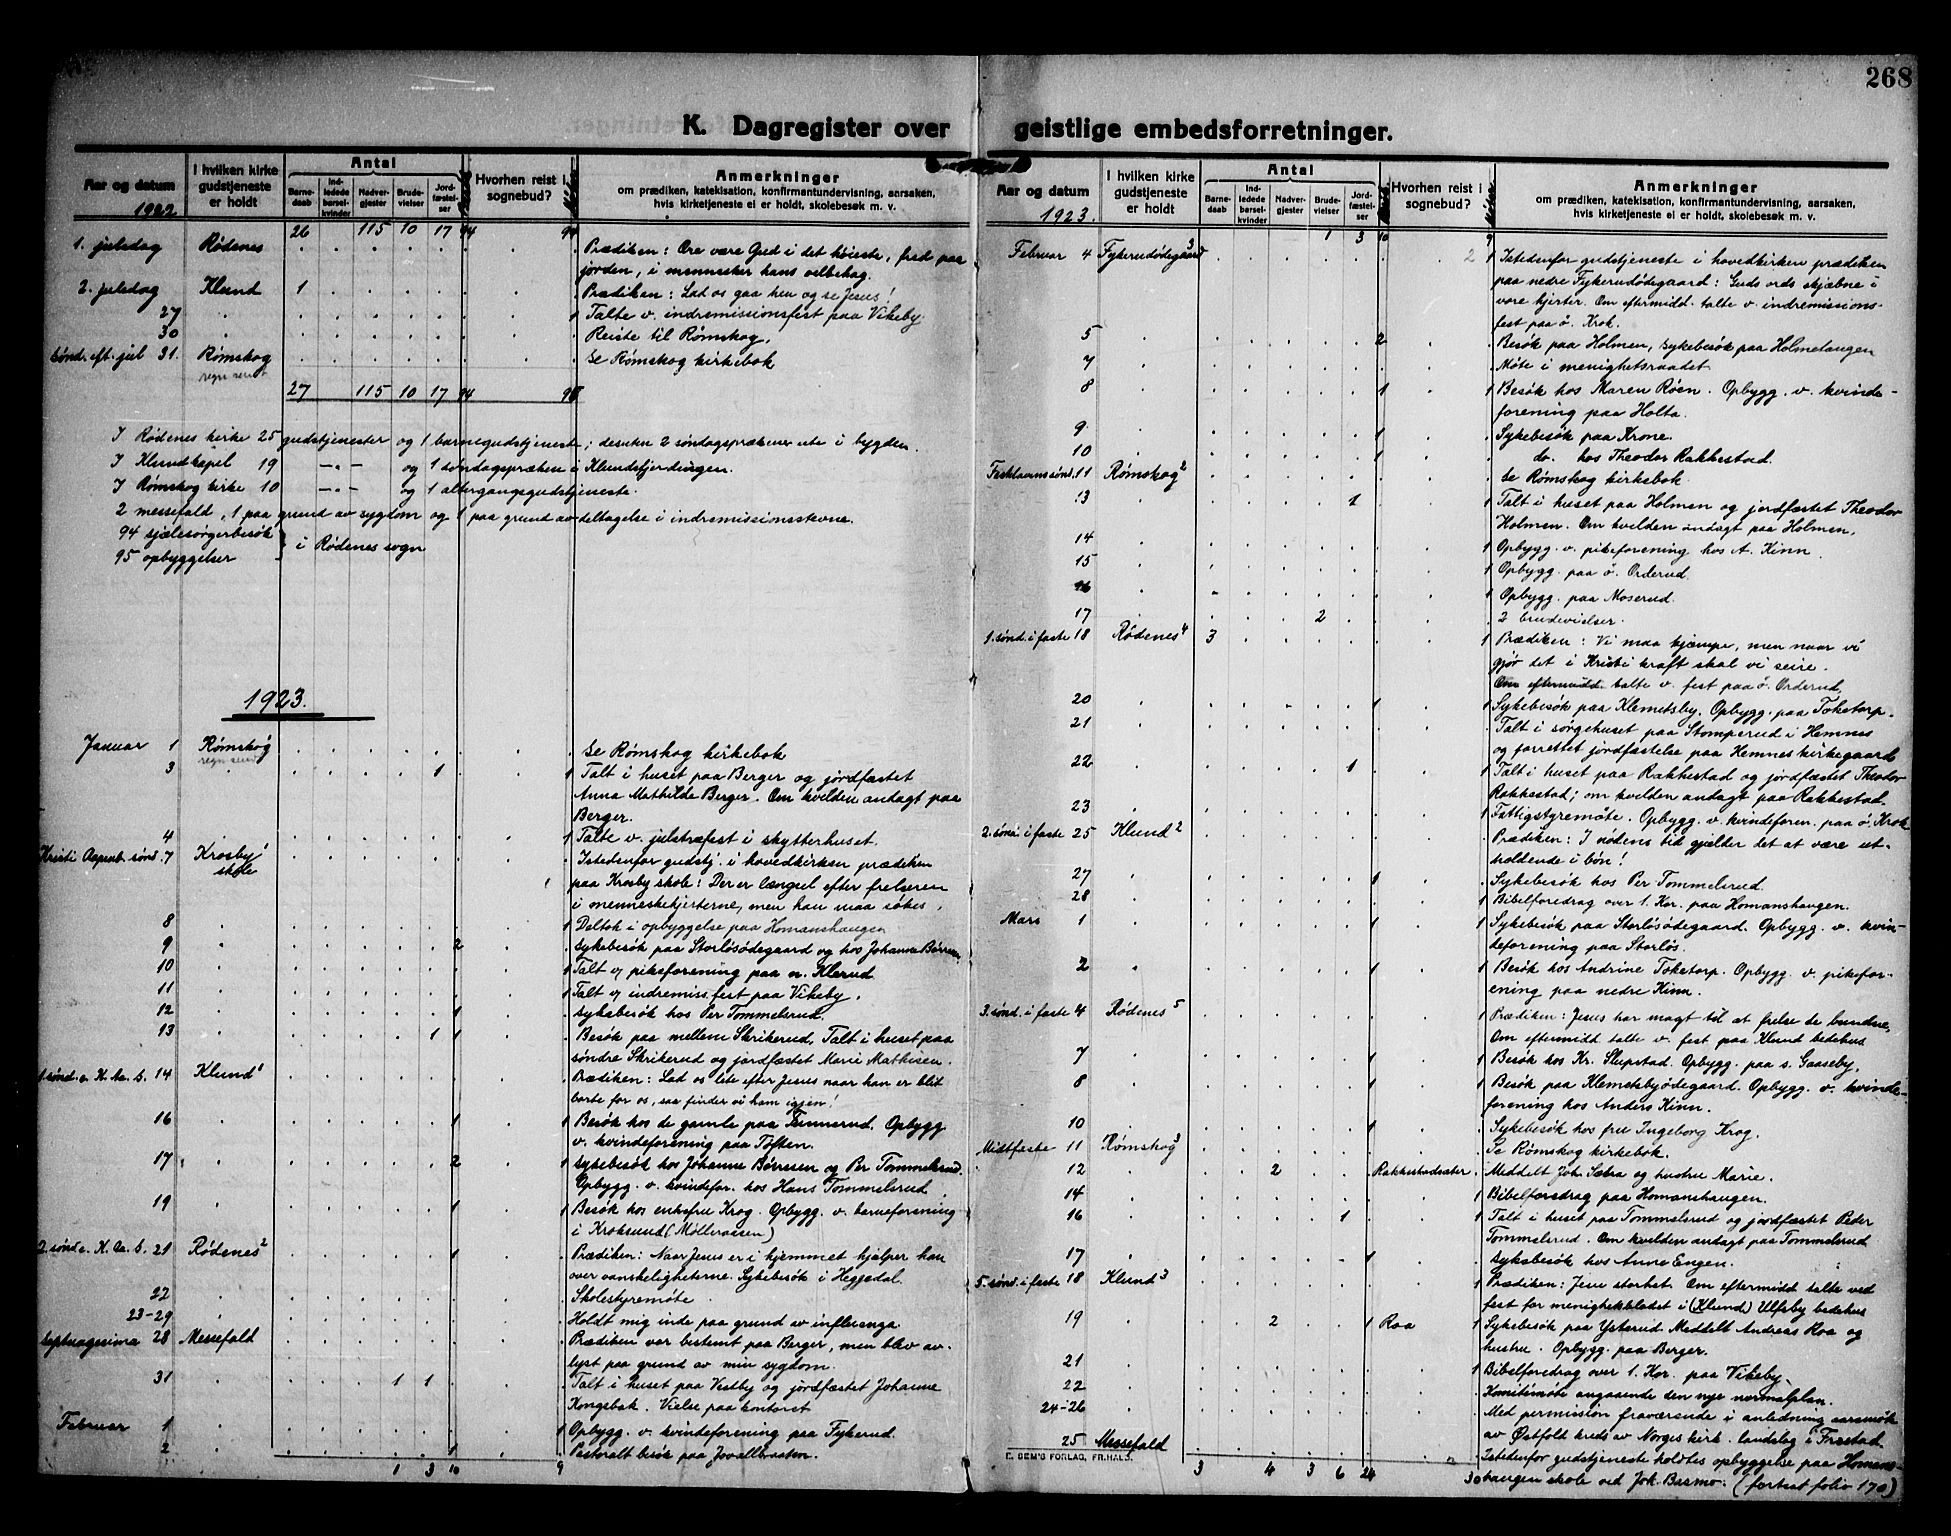 268
K. Dagregister over geistlige embedsforretninger.
Aar og datum
I hvilken kirke gudstjeneste er holdt
Antal
Barnedaab
Indledede barselkvinder
Nadvergjester
Brudevielser
Jordfæstelser
Hvorhen reist i sognebud?
Anmerkninger
om prædiken, katekisation, konfirmantundervisning, aarsaken,
hvis kirketjeneste ei er holdt, skolebesøk m. v.
1922
26 115 10 17 94 94
1. juledag Rødenes Prædiken: Ære være Gud i det høieste, fred paa
jorden, i mennesker hans velbehag.
2. juledag Klund 1 Prædiken: Lad os gaa hen og se Jesus!
27 1 Talte v. indremissionsfest paa Vikeby.
30 Reiste til Rømskog.
Sønd. eft. jul 31. Rømskog Se Rømskog kirkebok
27 115 10 17 94
I Rødenes kirke 25 gudstjenester og 1 barnegudstjeneste; desuten 2 søndagsprækener ute i bygden.
I Klund kapel 19 —"— og 1 søndagspræken i Klundsfjerdingen.
I Rømskog kirke 10 —"— og 1 altergangsgudstjeneste.
2 messefald, 1 paa grund av sygdom og 1 paa grund av deltagelse i indremissionsstevne.
94 sjælesørgerbesøk
95 opbyggelser
i Rødenes sogn
1923.
Januar 1 Rømskog Se Rømskog kirkebok
3 1 1 Talt i huset paa Berger og jordfæstet
Anna Mathilde Berger. Om kvelden andagt paa
Berger.
4 1 Talte v. juletræfest i skytterhuset.
Kristi Aapenb. sønd. 7 Krosby skole 1 Istedenfor gudstj. i hovedkirken prædiken
paa Krosby skole: Der er længsel efter frelseren
i menneskehjerterne, men han maa søkes.
8 1 Deltok i opbyggelse paa Homanshaugen
9 2 Sykebesøk paa Storløsødegaard og hos Johanne Børresen
10 1 Talt v. pikeforening paa n. Klerud
11 1 Talt v. indremiss.fest paa Vikeby.
12 1 Sykebesøk hos Per Tommelsrud.
13 1 1 Besøk paa mellem Skrikerud. Talt i huset paa
søndre Skrikerud og jordfæstet Marie Mathisen.
1. sønd. e. K. Aa. b. 14 Klund 1 Prædiken: Lad os lete efter Jesus naar han er blit
borte for os, saa finder vi ham igjen!
16 1 1 Besøk hos de gamle paa Tunnerud. Opbygg
v. kvindeforening paa Toften.
17 2 1 Sykebesøk hos Johanne Børresen og Per Tommelsrud.
Opbygg. v. kvindefor. hos Hans Tommelsrud.
19 1 1 Besøk hos enkefru Krog. Opbygg. v. barneforening
i Kroksund (Møllerossen)
2. sønd e. K. Aa. b. 21 Rødenes 2 1 Prædiken: Naar Jesus er i hjemmet hjælper han
over vanskeligheterne. Sykebesøk i Heggedal.
22 Skolestyremøte.
23-29 Holdt mig inde paa grund av influenza
Septuagesima 28 Messefald Prædiken var bestemt paa Berger, men blev av-
lyst paa grund av min sygdom.
31 1 1 Talt i huset paa Vestby og jordfæstet Johanne
Kongsbak. Vielse paa kontoret
Februar 1 1 Opbygg. v. kvindeforening paa Fykerud.
2 1 Pastoralt besøk paa Jovallbraaten.
1 3 10 9
Aar og datum
I hvilken kirke gudstjeneste er holdt
Antal
Barnedaab
Indledede barselkvinder
Nadvergjester
Brudevielser
Jordfæstelser
Hvorhen reist i sognebud?
Anmerkninger
om prædiken, katekisation, konfirmantundervisning, aarsaken,
hvis kirketjeneste ei er holdt, skolebesøk m. v.
1923.
1 3 10 9
Februar 4 Fykerudødegaard 3 2 1 Istedenfor gudstjeneste i hovedkirken prædiken
paa nedre Fykerudødegaard: Guds ords skjæbne i
vore hjerter. Om eftermidd. talte v. indremissions-
fest paa ø. Krok.
5 2 Besøk paa Holmen, sykebesøk paa Holmehaugen
7 Møte i menighetsraadet
8 1 1 Besøk hos Maren Røen. Opbygg. v. kvinde-
forening paa Holta.
9 1 Sykebesøk paa Krone.
10 1 do. hos Theodor Rakkestad.
Fastelavenssønd. 11 Rømskog 2 Se Rømskog kirkebok.
13 1 1 Talt i huset paa Holmen og jordfæstet Theodor
Holmen. Om kvelden andagt paa Holmen.
14 1 Opbygg. v. pikeforening hos A. Kinn.
15 1 Opbygg. paa ø. Orderud.
16 1 Opbygg. paa Moserud.
17 2 2 brudevielser.
1. sønd. i faste 18 Rødenes 4 3 1 Prædiken: Vi maa kjæmpe, men naar vi
gjør det i Kristi kraft skal vi seire.
Om eftermidd. talte v. fest paa ø. Orderud.
20 1 1 Sykebesøk paa Klemetsby. Opbygg. paa Toketorp.
21 Talt i sørgehuset paa Stomperud i Hemnes
og forrettet jordfæstelse paa Hemnes kirkegaard
22 1 1 Talt i huset paa Rakkestad og jordfæstet Theodor
Rakkestad; om kvelden andagt paa Rakkestad.
23 1 Fattigstyremøte. Opbygg. v. kvindeforen. paa ø. Krok
2. sønd. i faste 25 Klund 2 Prædiken: I nødens tid gjælder det at være ut-
holdende i bøn!
27 1 Sykebesøk hos Per Tommelsrud.
28 1 Bibelforedrag over 1. Kor. paa Homanshaugen.
Mars 1 1 1 Sykebesøk paa Storløsødegaard. Opbygg. v. kvin-
deforening paa Storløs.
2 1 1 Besøk hos Andrine Toketorp. Opbygg. v. pikefor-
ening paa nedre Kinn.
3. sønd. i faste 4 Rødenes 5 1 Prædiken: Jesus har magt til at frelse de bundne.
Om eftermidd talte v. fest paa Klund bedehus
7 1 1 Besøk hos Kr. Slupstad. Opbygg. paa s. Gaaseby.
8 1 1 Besøk paa Klemetsbyødegaard. Opbygg. v. kvinde-
forening hos Anders Kinn.
10 1 Sykebesøk hos fru Ingeborg Krog.
Midtfaste 11 Rømskog 3 Se Rømskog kirkebok.
12 2 Rakkestadsæter Meddelt Joh. Sætra og hustru Marie.
14 1 Bibelforedrag paa Homanshaugen.
16 1 1 Talt i huset paa Tommelsrud og jordfæstet Peder
Tommelsrud. Om kvelden andagt paa Tommelsrud
17 1 Sykebesøk hos Anne Engen.
5. sønd. i faste 18 Klund 3 1 Prædiken: Jesu storhet. Om eftermidd talte ved
fest for menighetsbladet i (Klund) Ulfsby bedehus
19 2 1 Roa 1 Sykebesøk paa Ysterud. Meddelt Andreas Roa og
hustru. Opbygg. paa Berger.
21 1 Bibelforedrag over 1. Kor. paa Vikeby.
22 Komitémøte angaaende den nye normalplan.
24-26 Med permission fraværende i anledning aarsmøte
av Østfold kreds av Norges kirk. landslag i Fr.stad.
25 Messefald Istedenfor gudstjeneste holdtes opbyggelse paa Homans-
haugen skole ved Joh. Bermo. (fortsat folio 170)
E. SEM'S FORLAG, FR.HALD.
3 4 3 6 24 30